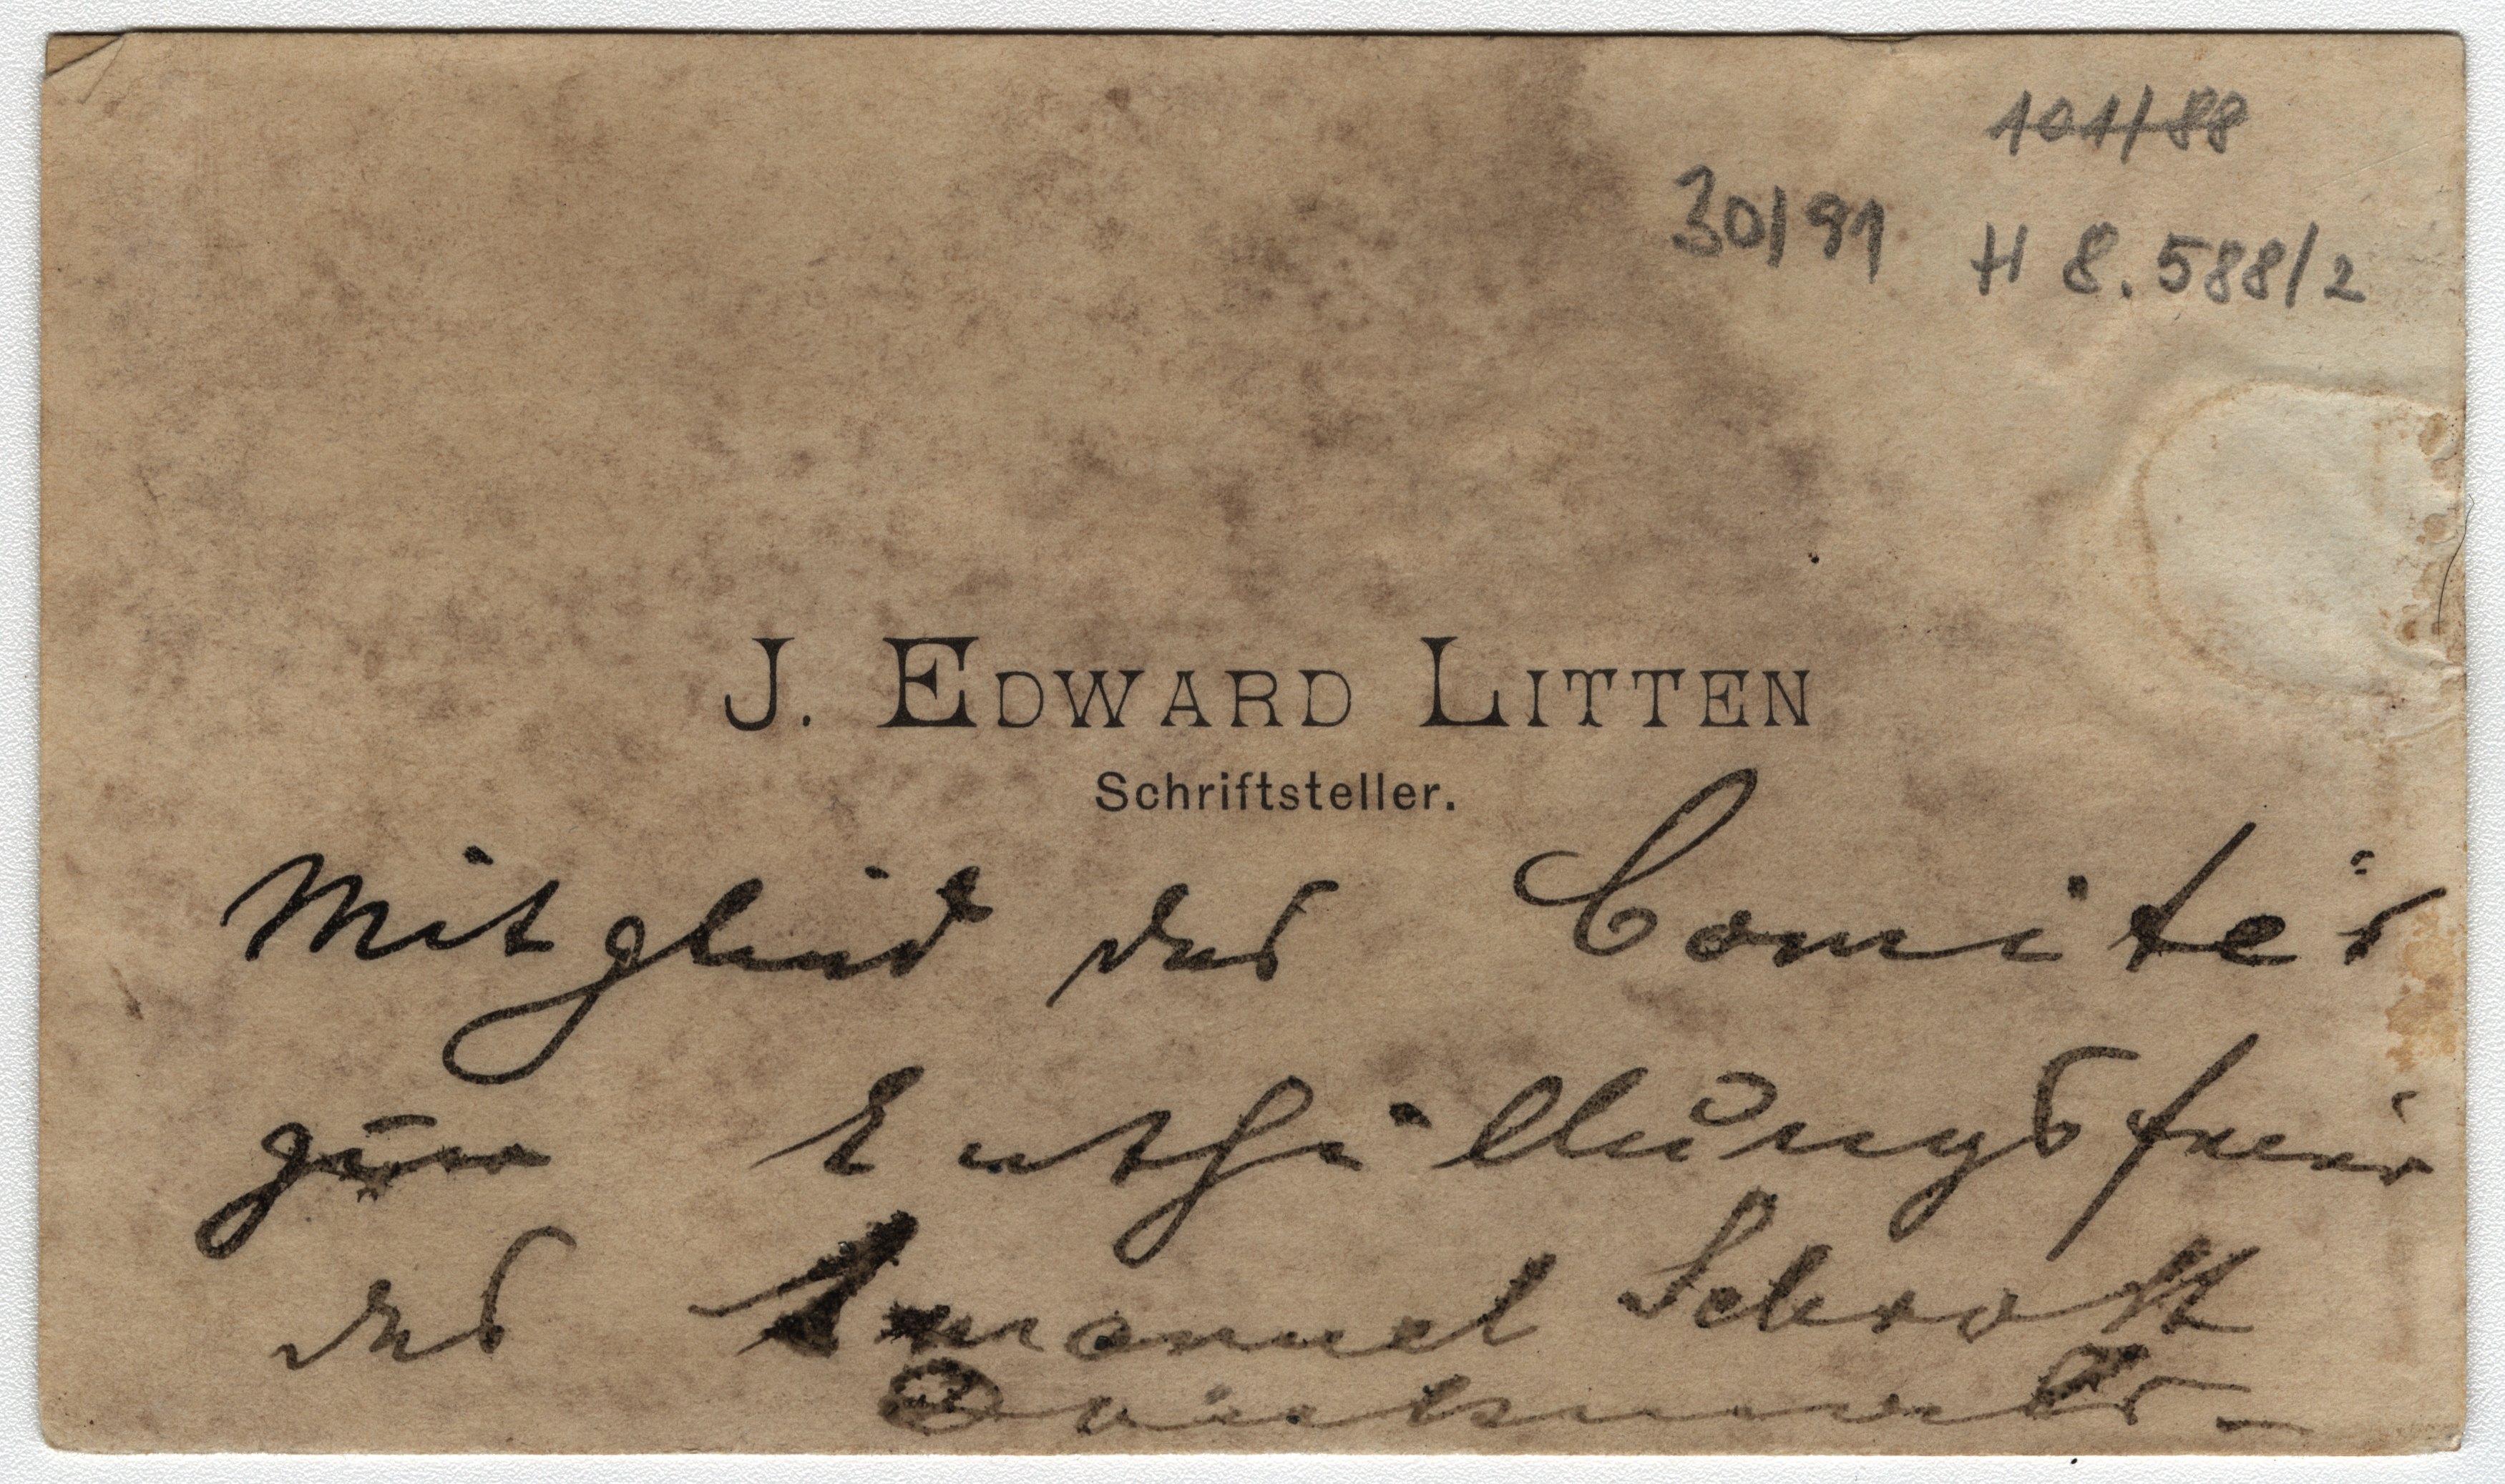 101/88
30/91 H 8.588/2
J. EDWARD LITTEN
Schriftsteller.
Mitglied des Comités
zur Enthüllungsfeier
des Emanuel Schrott